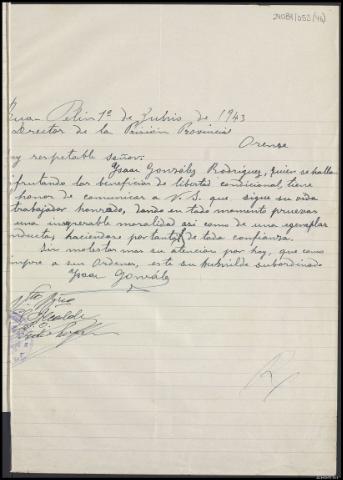 24084/052 (46)
Petin 1º de Junio de 1943
Director de la Prisión Provincial
Orense
uy respetable señor:
Ysaac González Rodriguez, quien se halla
sfrutando los beneficios de libertad condicional, tiene
honor de comunicar a V.S. que sigue su vida
trabajador honrado, dando en todo momento pruevas
una insuperable moralidad asi como de una egemplar
nducta, haciendose por tanto de toda confianza.
Sin molestar mas su atencion por hoy, queda como
mpre a sus Ordenes, este su humilde subordinado
Ysaac González
Vto Bno
Alcalde